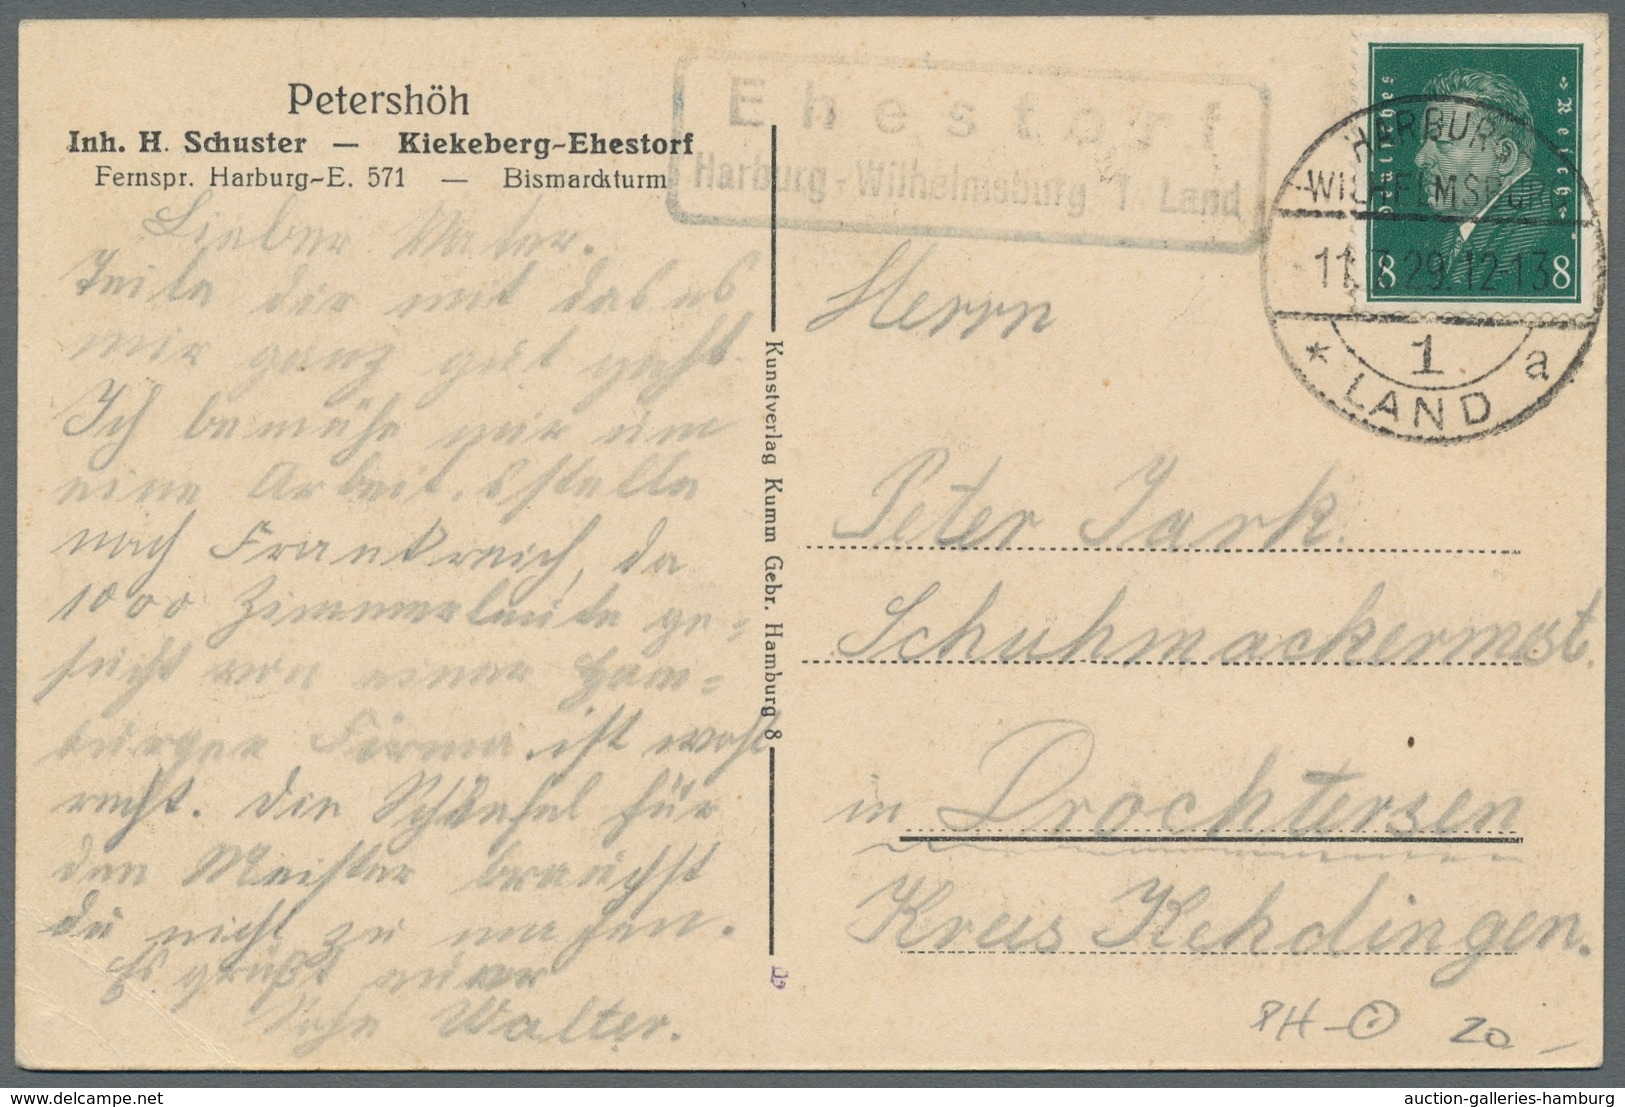 Petershöh
Inh. H. Schuster — Kiekeberg-Ehestorf
Fernspr. Harburg-E. 571 — Bismarckturm
Ehestorf
Harburg-Wilhelmsburg 1 Land
Deutsches Reich
8 8
HARBURG
-WILHELMSBURG
11. 29.12-13
1 a
* LAND
Lieber Vater.
Teile dir mit das es
mir ganz gut geht
Ich bemühe mir um
eine Arbeitsstelle
nach Frankreich, da
1000 Zimmerleute ge=
sucht von einer Ham=
burger Firma ist wohl
recht. Die für
den Meister brauchst
du nicht zu machen.
Es grüßt euer
Sohn Walter.
Kunstverlag Kumm Gebr. Hamburg 8
Herrn
Peter Jark.
Schuhmachermst.
in Drochtersen
Kreis Kehdingen.
PH-
20 -
www.delcampe.net
auction-galleries-hamburg